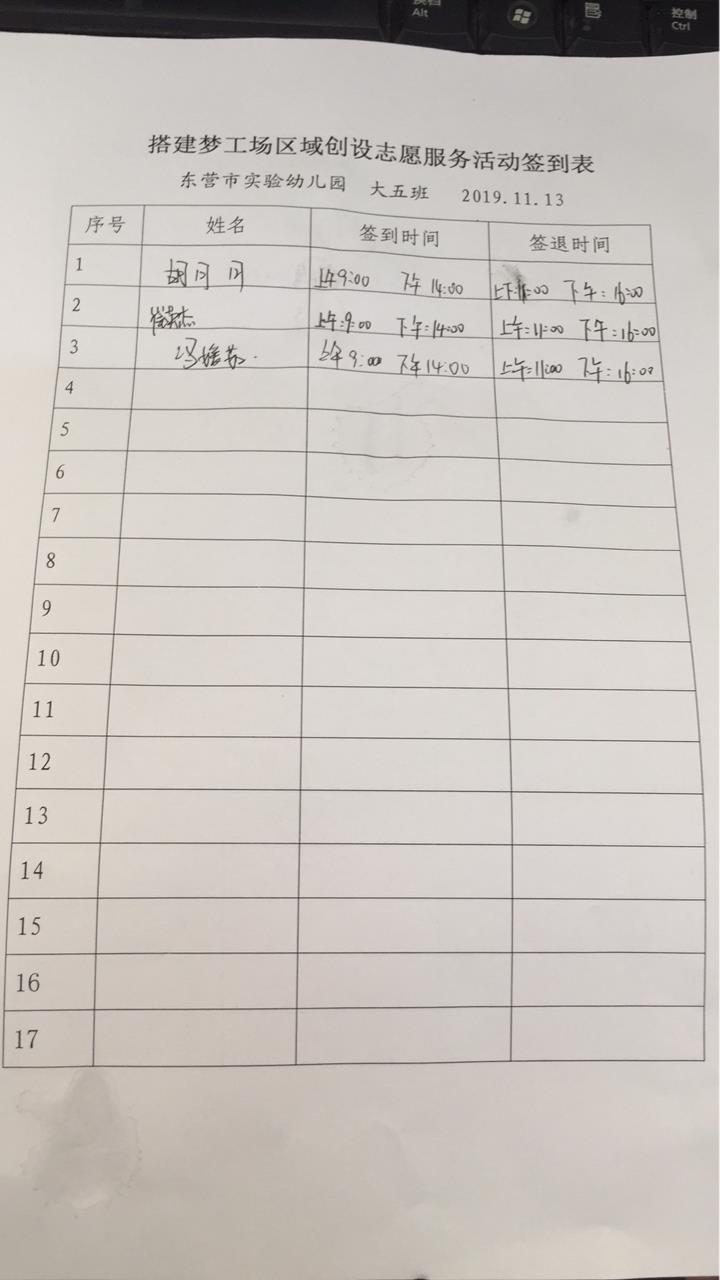 换档
Alt
控制
Ctrl
搭建梦工场区域创设志愿服务活动签到表
东营市实验幼儿园 大五班 2019.11.13
序号 姓名 签到时间 签退时间
1 胡闪闪 上午9:00 下午14:00 上午:11:00 下午:16:00
2 上午:9:00 下午:14:00 上午:11:00 下午:16:00
3 上午9:00 下午14:00 上午:11:00 下午:16:00
4
5
6
7
8
9
10
11
12
13
14
15
16
17